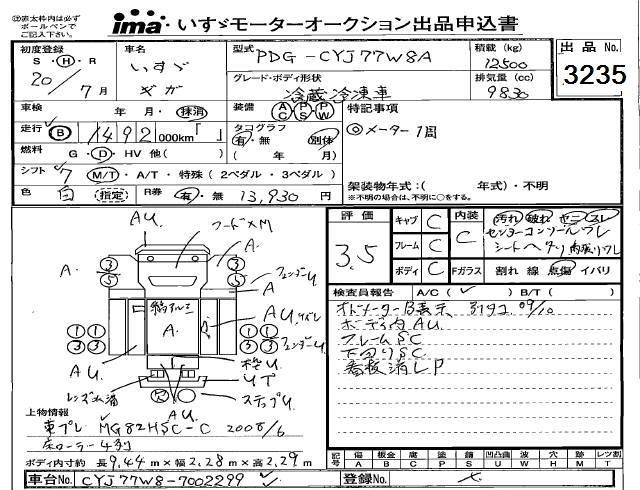 ㊟太枠内は必ず ボールペンで ご記入下さい
ima いすゞモーターオークション出品申込書
初度登録 S・H・R 20/7月
車名 いすゞ ギガ
型式 PDG-CYJ77W8A
積載(kg) 12500
出品No. 3235
グレード・ボディ形状 冷蔵冷凍車
排気量(cc) 9830
車検 年・月・抹消
装備 AC PS PW
特記事項
走行 B 1492 000km「 」
タコグラフ 有・無 別体 ( 年 月)
◎メーター1周
燃料 G・D・HV 他( )
シフト 7 M/T・A/T・特殊(2ペダル・3ペダル)
架装物年式:( 年式)・不明
※不明の場合は、不明に○をする。
色 白 (指定) R券 有・無 13,930円
評価 3.5
キャブ C
フレーム C
ボディ C
内装 C
汚れ 破れ ヤニ スレ
センターコンソールワレ
シートヘタリ 内張りワレ
Fガラス 割れ 線 点傷 イバリ
検査員報告 A/C( ✓ ) B/T( )
オドメーターB表示、 記録タコ 09/10
ボーディ内AU.
フレームSC
下回りSC
看板消LP
AU. フードメM
A. A. フェンダーU
3 5 3 5
A
縞アルミ A. AU.
1 1 3 3 1 1 3 3
フェンダーU
AU. AU.
枠U
UT
レンズ水滴 ステップU
AU
上物情報
東プレ MG82HSC-C 2008/6
床ローラー4列
ボディ内寸約 長9.44m×幅2.28m×高2.29m
記号 傷 板金 鈑 腐 塗 錆 凹凸曲 波 穴 跡 レツ割
A B C S U W H
車台No. CYJ77W8-7002299 ✓
登録No.